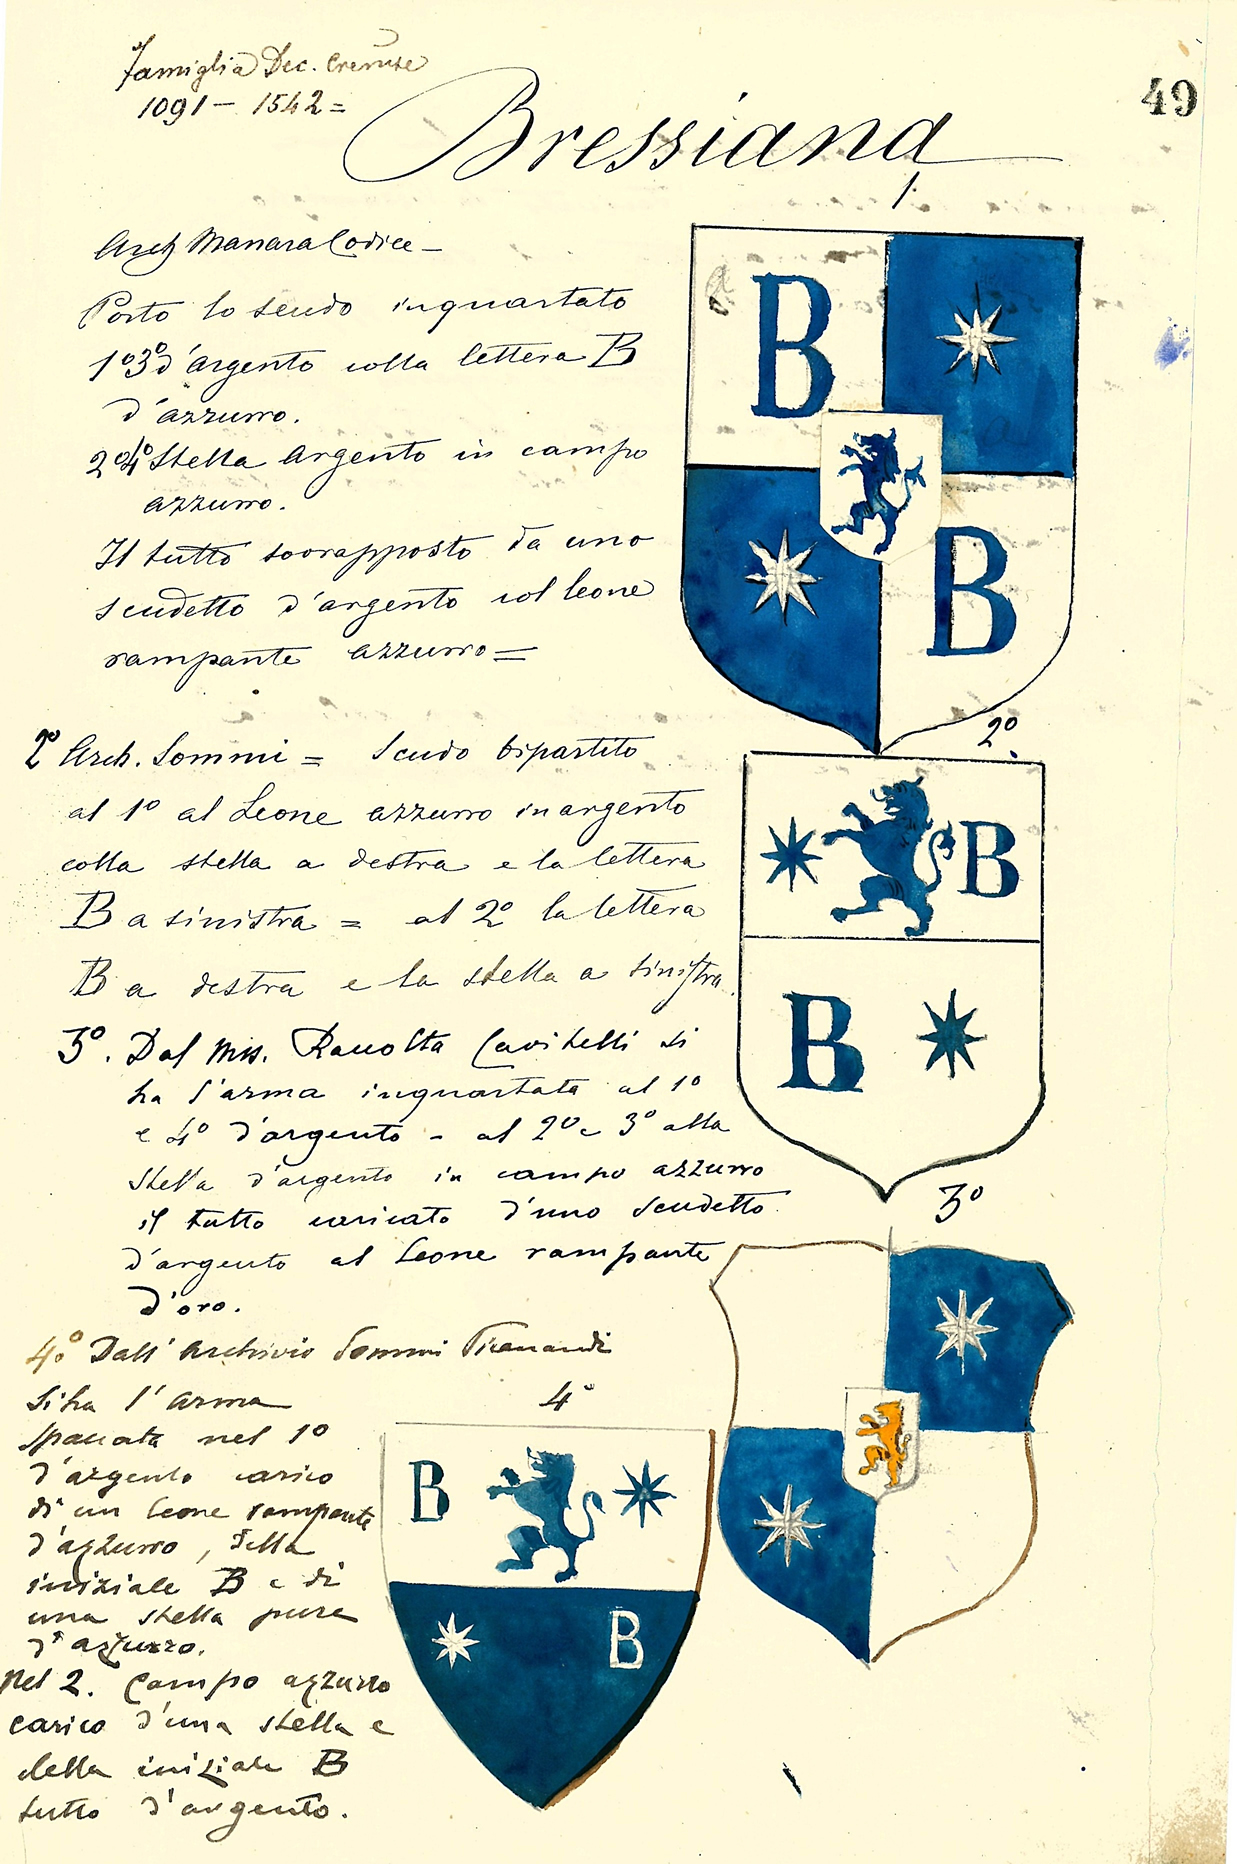 Famiglia Dec. Cremse
1091 - 1542 =
49
Bressiana
1.
Arch Manara Codice -
Porto lo scudo inquartato
1º3º d'argento colla lettera B
d'azzurro.
2º4º Stella argento in campo
azzurro.
Il tutto sovrapposto da uno
scudetto d'argento col leone
rampante azzurro =
B
B
2º Arch. Sommi = Scudo bipartito
al 1º al Leone azzurro in argento
colla stella a destra e la lettera
B a sinistra = al 2º la lettera
B a destra e la stella a sinistra.
2º
B
B
3º. Dal Mss. Raccolta Cavitelli si
ha l'arma inquartata al 1º
e 4º d'argento - al 2º e 3º alla
stella d'argento in campo azzurro
il tutto caricato d'uno scudetto
d'argento al Leone rampante
d'oro.
3º
4º Dall' Archivio Sommi Picenardi
si ha l'arma
spaccata nel 1º
d'argento carico
di un leone rampante
d'azzurro, della
iniziale B e di
una stella pure
d'azzurro.
Nel 2. Campo azzurro
carico d'una stella e
della iniziale B
tutto d'argento.
4º
B
B